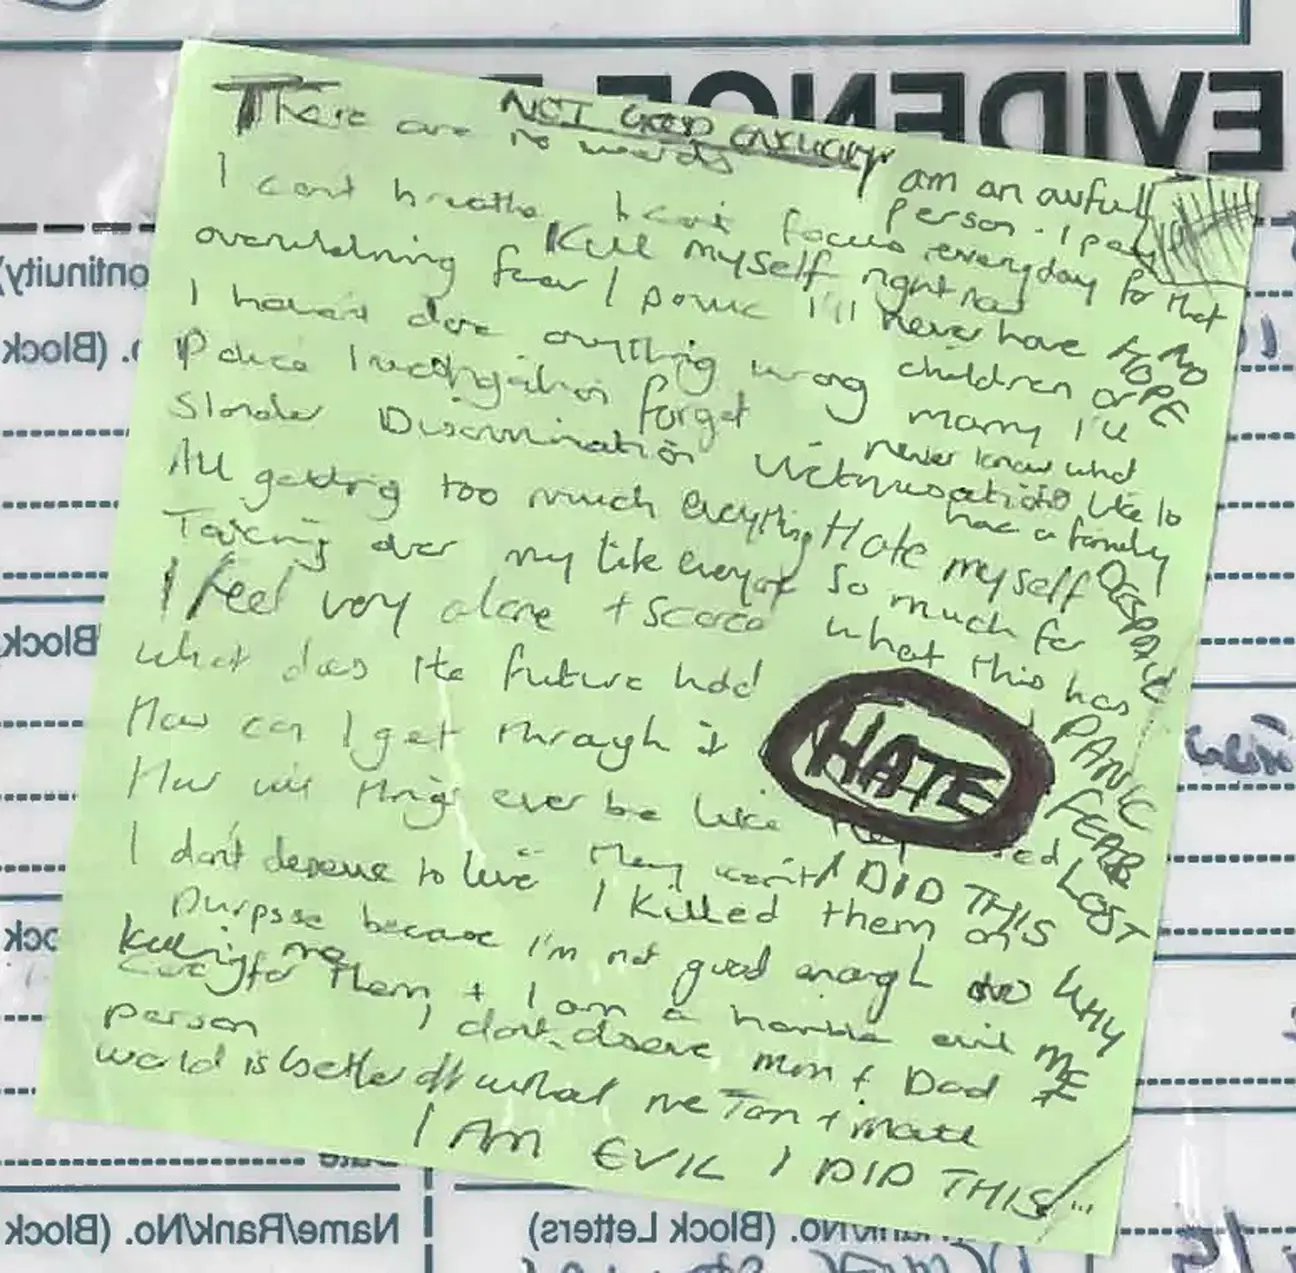 EVIDENCE
NOT GOOD ENOUGH
There are no words
I am an awful person. I pay everyday for that
I cant breathe I cant focus
Kill myself right now
overwhelming fear / panic I'll never have children or marry I'll never know what it's like to have a family
NO HOPE
I haven't done anything wrong
Police Investigation forget
Slander Discrimination Victimisation
All getting too much everything
Taking over my life everyday
Hate myself so much for what this has
DESPAIR
I feel very alone + scared
What does the future hold
How can I get through it
HATE
PANIC
FEAR
LOST
How will things ever be like they used
I don't deserve to live They won't
I DID THIS
WHY ME
I killed them on purpose because I'm not good enough to care for them + I am a horrible evil person
killing me
I dont deserve Mum + Dad
world is better off without me Tom + Matt
I AM EVIL I DID THIS
ontinuity)
o. (Block
Block
Date
Name/Rank/No. (Block
Rank/No. (Block Letters)